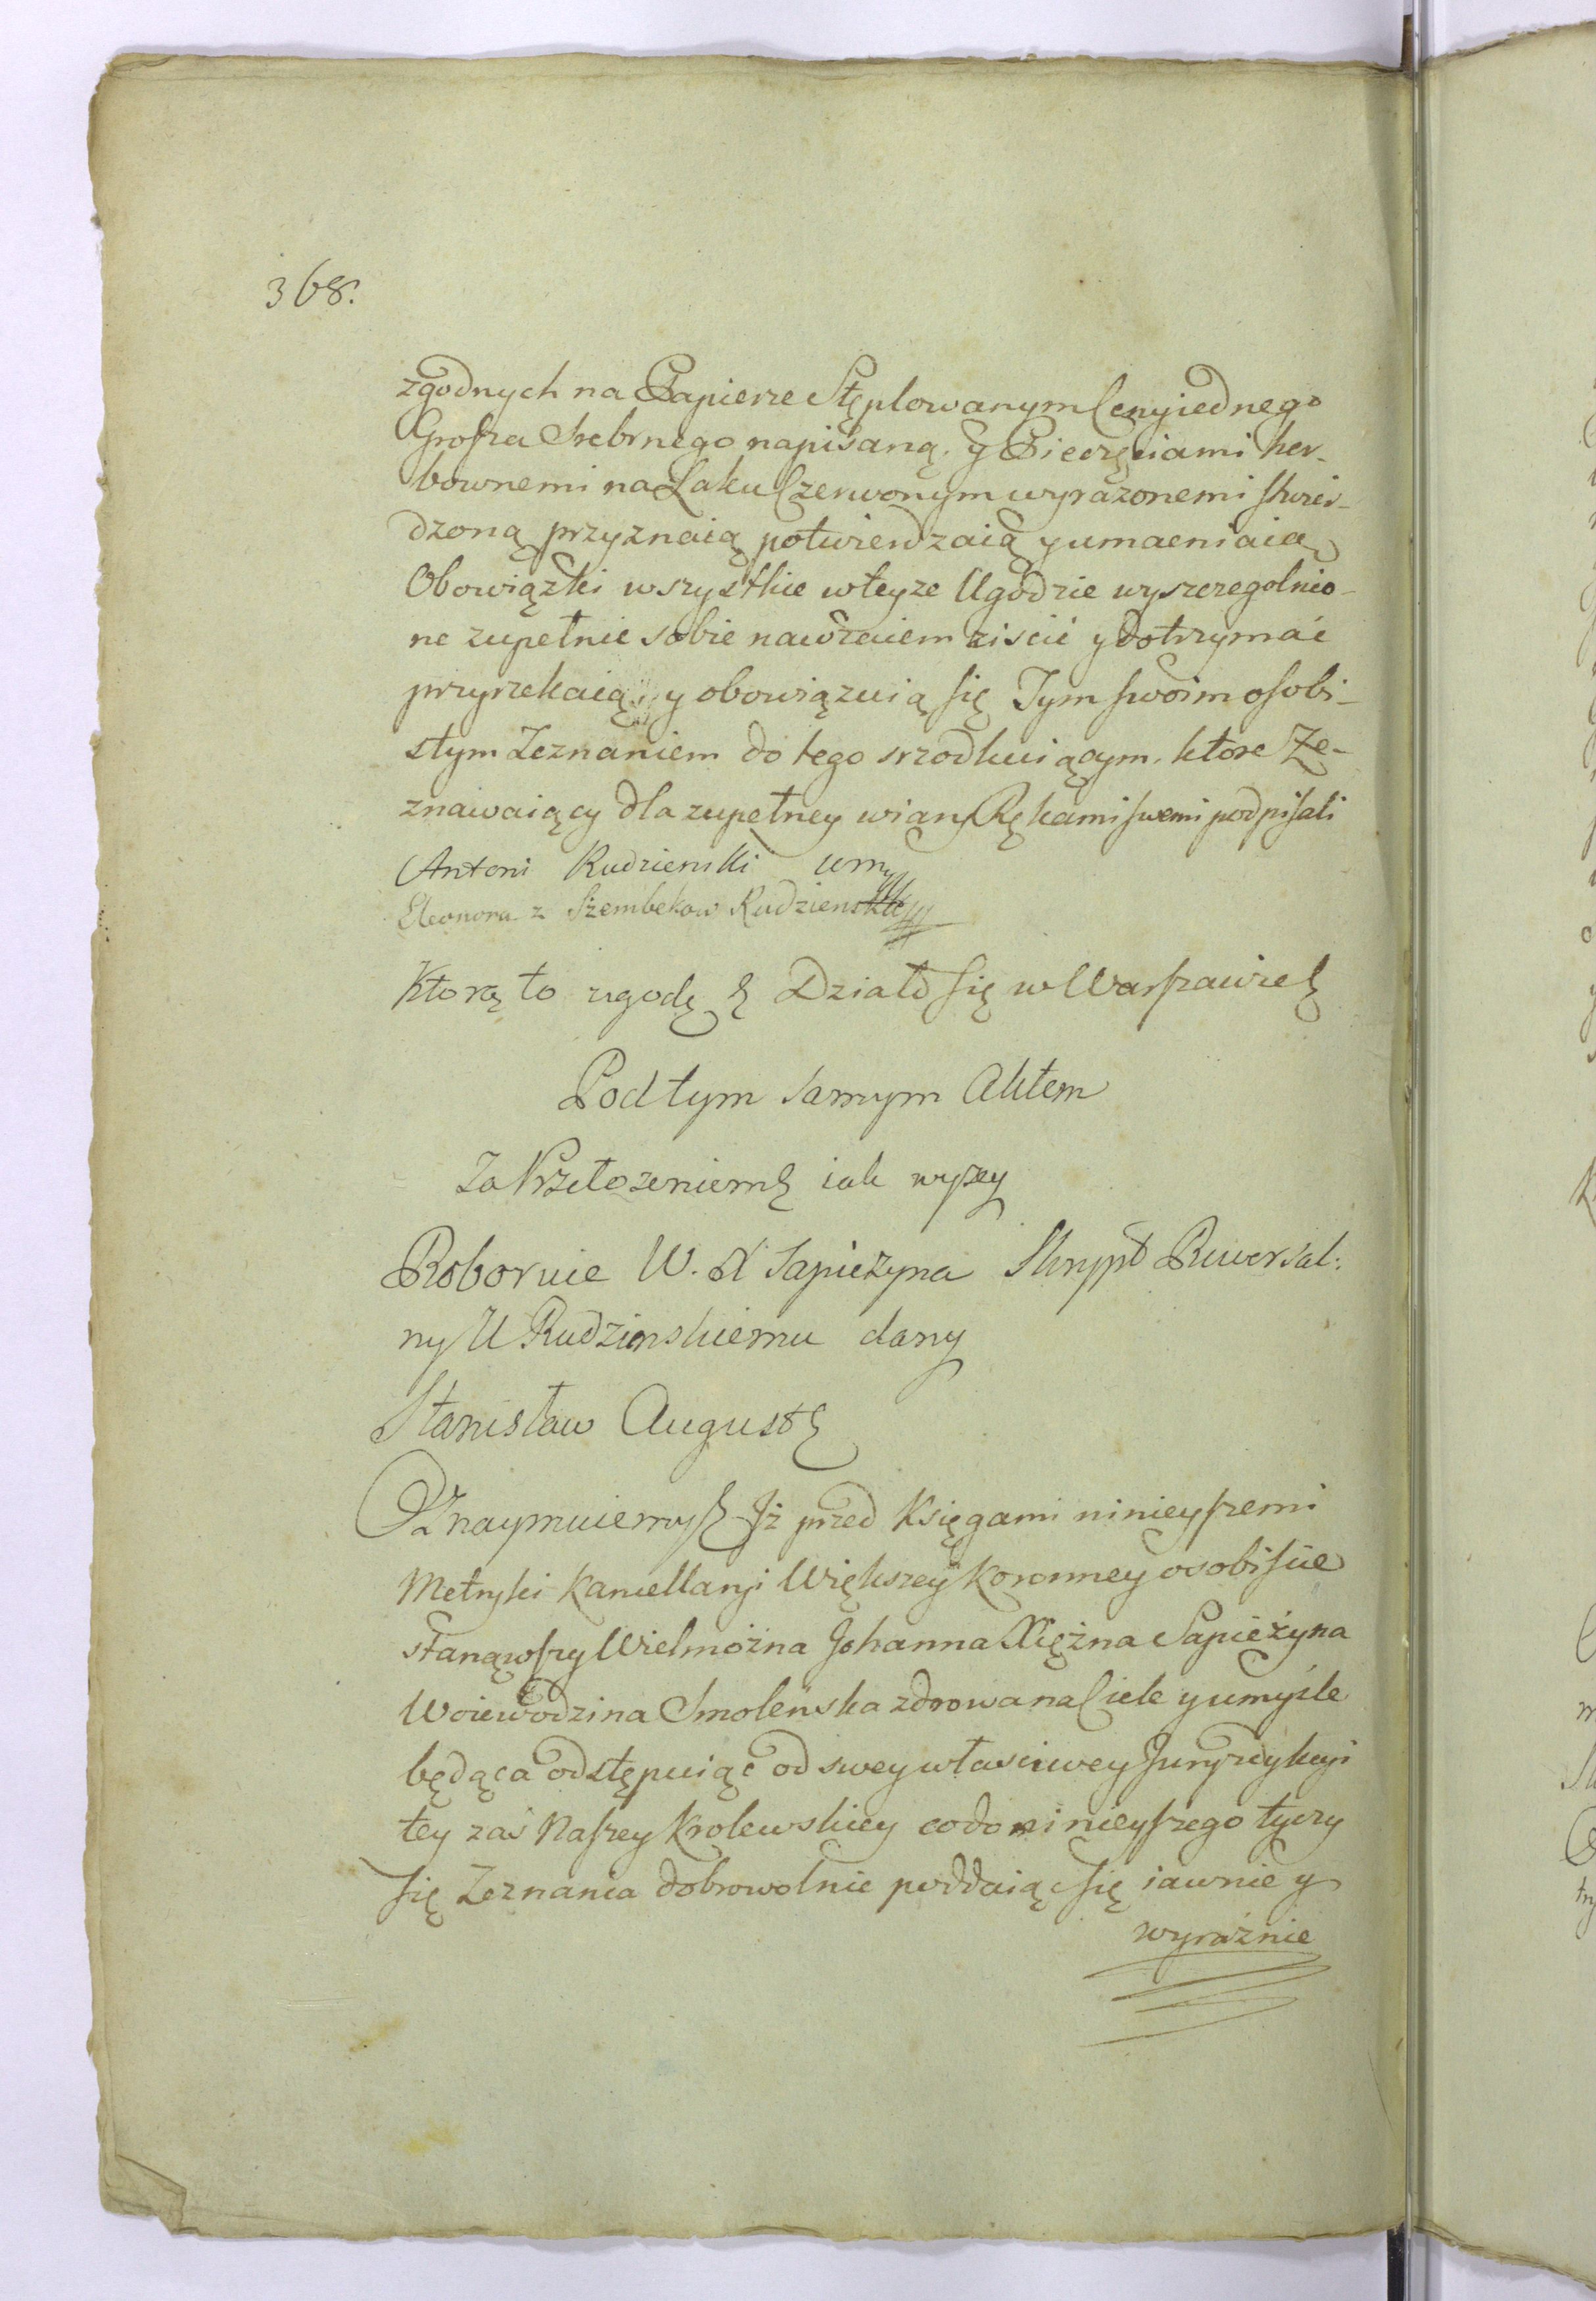 368.
zgodnych na Papierze Stęplowanym Ceny iednego
Grosza Srebrnego napisaną. y Pieczęciami her-
bownemi na Laku Czerwonym wyrazonemi stwier-
dzoną przyznaią potwierdzaią y umacniaią
Obowiązki wszystkie w teyze Ugodzie wyszczegolnio-
ne zupełnie sobie nawzaiem ziscić y dotrzymać
przyrzekaią y obowiązuią się Tym swoim osobi-
stym Zeznaniem do tego srzodkuiącym. ktore Ze-
znawaiący dla zupełney wiary Rękami swemi podpisali
Antoni Rudzienski
Eleonora z Szembekow Rudzienska
Ktorą to ugodę & Działo się w Warszawie &
Pod tym samym Aktem
Za Przełozeniem & iak wyzey
Roboruie W. X Sapiezyna Skrypt Rewersal:
ny U Rudzinskiemu dany
Stanisław August &
Oznaymuiemy & Iż przed Księgami ninieyszemi
Metryki Kancellaryi Większey Koronney osobiście
stanąwszy Wielmożna Johanna Xiężna Sapieżyna
Woiewodzina Smoleńska zdrowa na Ciele y umyśle
będąca odstępuiąc od swey własciwey Juryzdykcyi
tey zaś Naszey Krolewskiey co do ninieyszego tyczy
się Zeznania dobrowolnie poddaiąc się iawnie y
wyraźnie